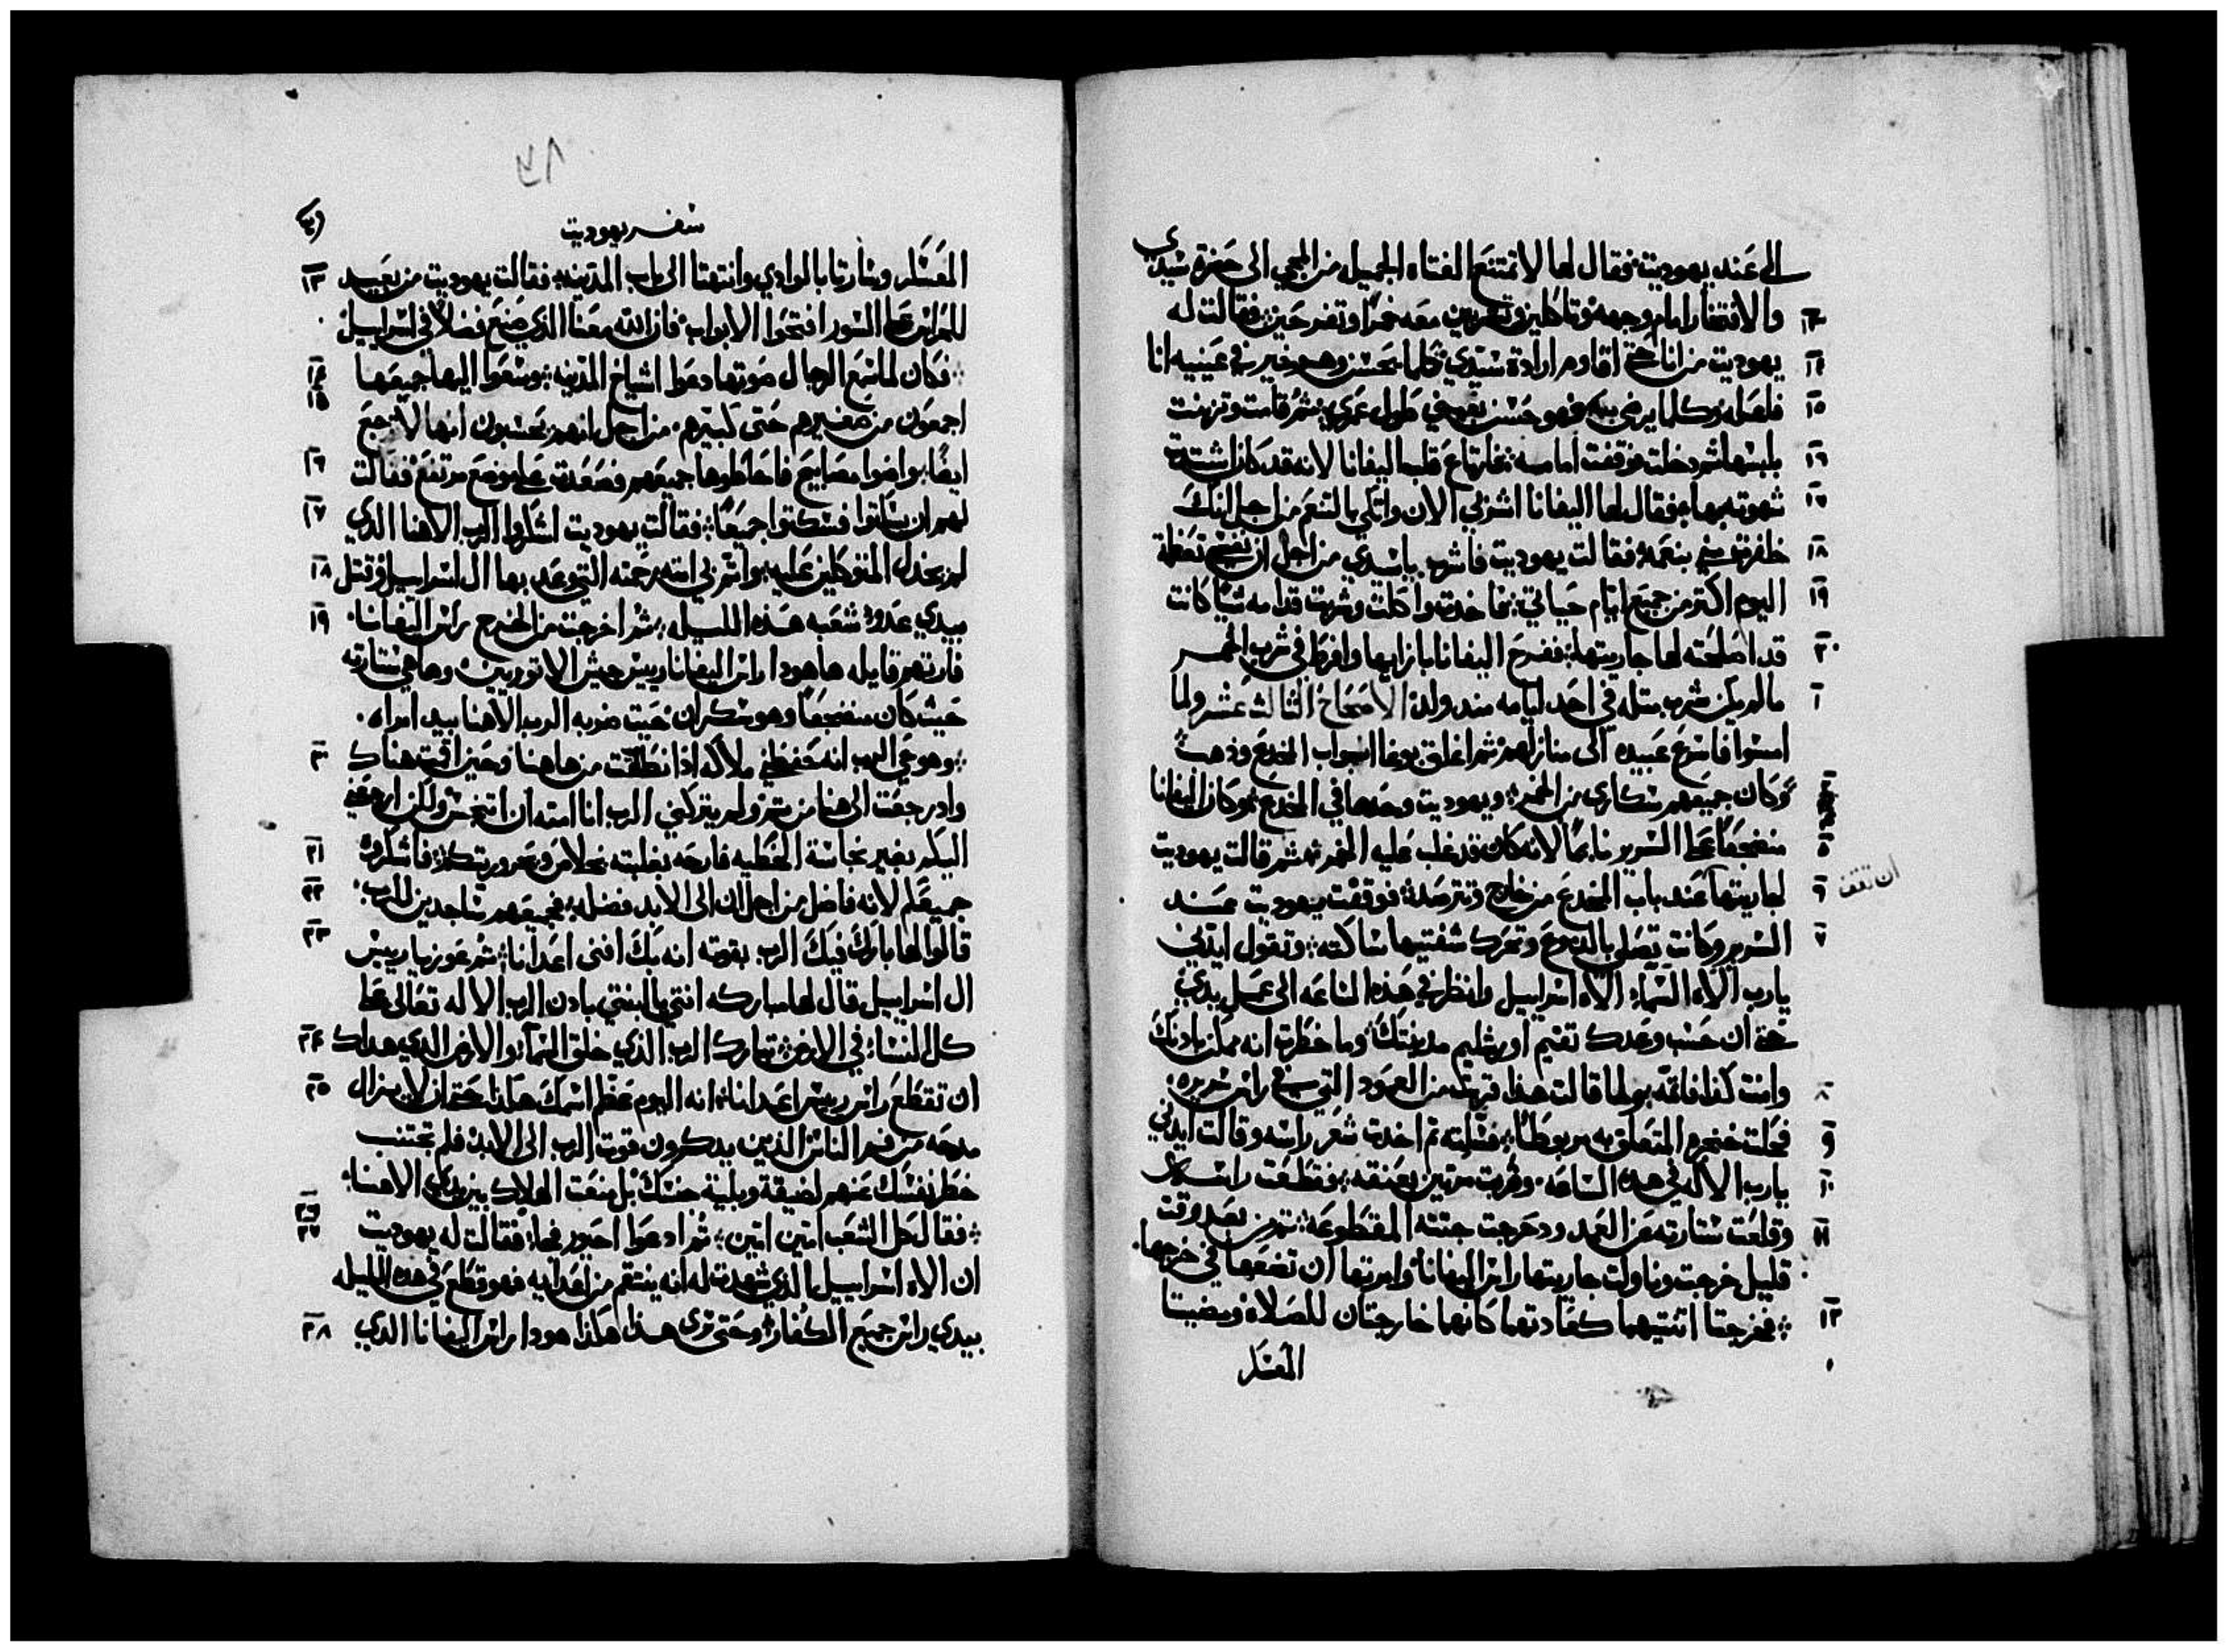 الى عند يهوديت فقال لها لا تمتنع الفتاه الجميل من المجي الى حضرة سيدي
والافتخار امام وجهه وتاكلين وتشربين معه خمرًا وتفرحين فقالت له ١٣
يهوديت من انا حتى اقاوم ارادة سيدي كلما يحسن وهو خير في عينيه انا ١٤
فلعله وكلما يرضي به فهو حسن طول عمري ثم قامت وتزينت ١٥
بلبسها ثم دخلت فوقفت امامه فارتاع قلب اليفانا لانه قد كان اشتدت ١٦
شهوته بها فقال لها اليفانا اشربي الان واتكي بالتنعم من اجل انك ١٧
ظفرتي مني بنعمه فقالت يهوديت فاشرب ياسيدي من اجل ان نفسي تعظمة ١٨
اليوم اكتر من جميع ايام حياتي فاخدت واكلت وشربت قدامه شيًا كانت ١٩
قد اصلحته لها جاريتها ففرح اليفانا بازايها وافرط في شرب الخمر ٢٠
مالم يكن شرب متله في احد ايامه مند ولد الاصحاح الثالث عشر ولما ١
امسوا فاسرع عبيده الى منازلهم ثم اغلق بوغا ابواب المخدع وذهب
وكان جميعهم سكارى من الخمر ويهوديت وحدها في المخدع وكان اليفانا
منضجعًا على السرير نايمًا لانه كان قد غلب عليه الخمر ثم قالت يهوديت ٥
لجاريتها عند باب المخدع من خارج وتترصدة فوقفت يهوديت عند ٦
ان تقف
السرير وكانت تصلي بالدموع وتحرك شفتيها ساكته وتقول ايدني ٧
يارب الاه السماء الاه اسراييل وانظر في هذه الساعه الى عمل يدي
حتى ان حسب وعدك تقيم اورشليم مدينتك وما خطرت انه ممكن بادنك
وانت كذا فاتمه ولما قالت هذا قربت من العمود التي في راس سريره ٨
فحلت خنجره المتعلق به مربوطًا فسلته ثم اخدت شعر راسه وقالت ايدني ٩
يارب الاله في هده الساعه وضربت مرتين بعنقه فقطعت راسه ١٠
وقلعت ستارته عن العمد ودحرجت جتته المقطوعه ثم من بعد وقت ١١
قليل خرجت وناولت جاريتها راس اليفانا وامرتها ان تضعها في خرجها
فخرجتا اثنتيهما كعادتهما كانها خارجتان للصلاة ومضيتا ١٢
العسكر
١٨٢
سفر يهوديت
العسكر وسارتا بالوادي وانتهتا الى باب المدينه فقالت يهوديت من بعيد ١٣
للحراس على السور افتحوا الابواب فان الله معنا الذي صنع فضلًا في اسراييل
فكان لما سمع الرجال صوتها دعوا اشياخ المدينه وسعوا اليها جميعها ١٤
اجمعون من صغيرهم حتى كبيرهم من اجل انهم يحسبون انها لا ترجع ١٥
ايضًا واضوا مصابيح فاحاطوها جميعهم فصعدت على موضع مرتفع فقالت ١٦
لهم ان يسكتوا فسكتوا جميعًا فقالت يهوديت اشكروا الرب الاهنا الذي ١٧
لم يخدل المتوكلين عليه واتم بي امته رحمته التي وعد بها ال اسراييل وقتل ١٨
بيدي عدو شعبه هذه الليله ثم اخرجت من الخرج راس اليفانا ١٩
فارتهم قايله ها هودا راس اليفانا رييس جيش الاتوريين وها هي ستارته
حيث كان منضجعًا وهو سكران حيت ضربه الرب الاهنا بيد امراه
وهو حي الرب انه حفظني ملاكه اذ انطلقت من هاهنا وحين اقمت هناك ٢٠
واد رجعت الى هنا من تم ولم يتركني الرب انا امته ان اتنجس ولكن ارجعني
اليكم بغير نجاسة الخطيه فارحه بغلبته بخلاصي وتحريركم فاشكروه ٢١
جميعكم لانه فاضل من اجل ان الى الابد فضله فجميعهم ساجدين للرب ٢٢
قالوا لها بارك فيك الرب بقوته انه بك افنى اعدانا ثم عوزيا رييس ٢٣
ال اسراييل قال لها مباركه انتي يا ابنتي بادن الرب الاله تعالى على
كل النساء في الارض تبارك الرب الذي خلق السماء والارض الدي هداك ٢٤
ان تقطع راس رييس اعدانا انه اليوم عظم اسمك هكذا حتى ان لا يزال ٢٥
مدحه من فم الناس الذين يدكرون قوت الرب الى الابد فلم تجتنب
خطر نفسك عنهم لضيقة وبلية جنسك بل منعت الهلاك بين يدي الاهنا
فقال كل الشعب امين امين ثم ادعوا احيور فجا فقالت له يهوديت ٢٦ ٢٧
ان الاه اسراييل الذي شهدت له انه ينتقم من اعدايه فهو قطع في هذه الليله
بيدي راس جميع الكفار وحتى ترى هذا هكذا هودا راس اليفانا الدي ٢٨